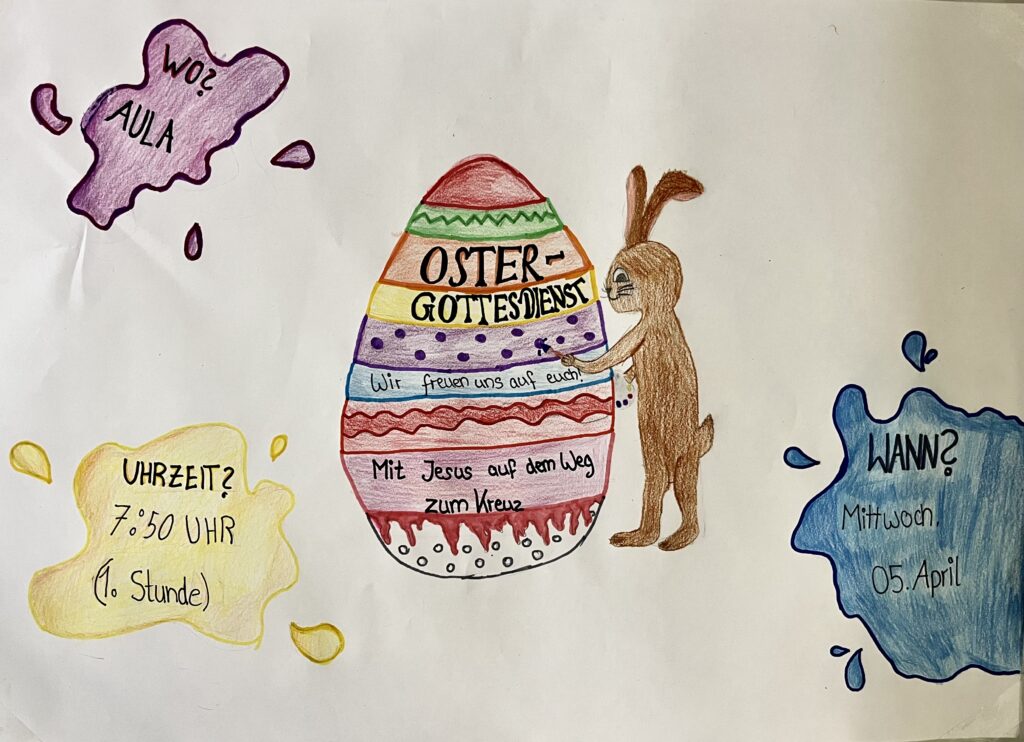 WO?
AULA
OSTER-
GOTTESDIENST
Wir freuen uns auf euch!
Mit Jesus auf dem Weg
zum Kreuz
UHRZEIT?
7:50 UHR
(1. Stunde)
WANN?
Mittwoch,
05. April